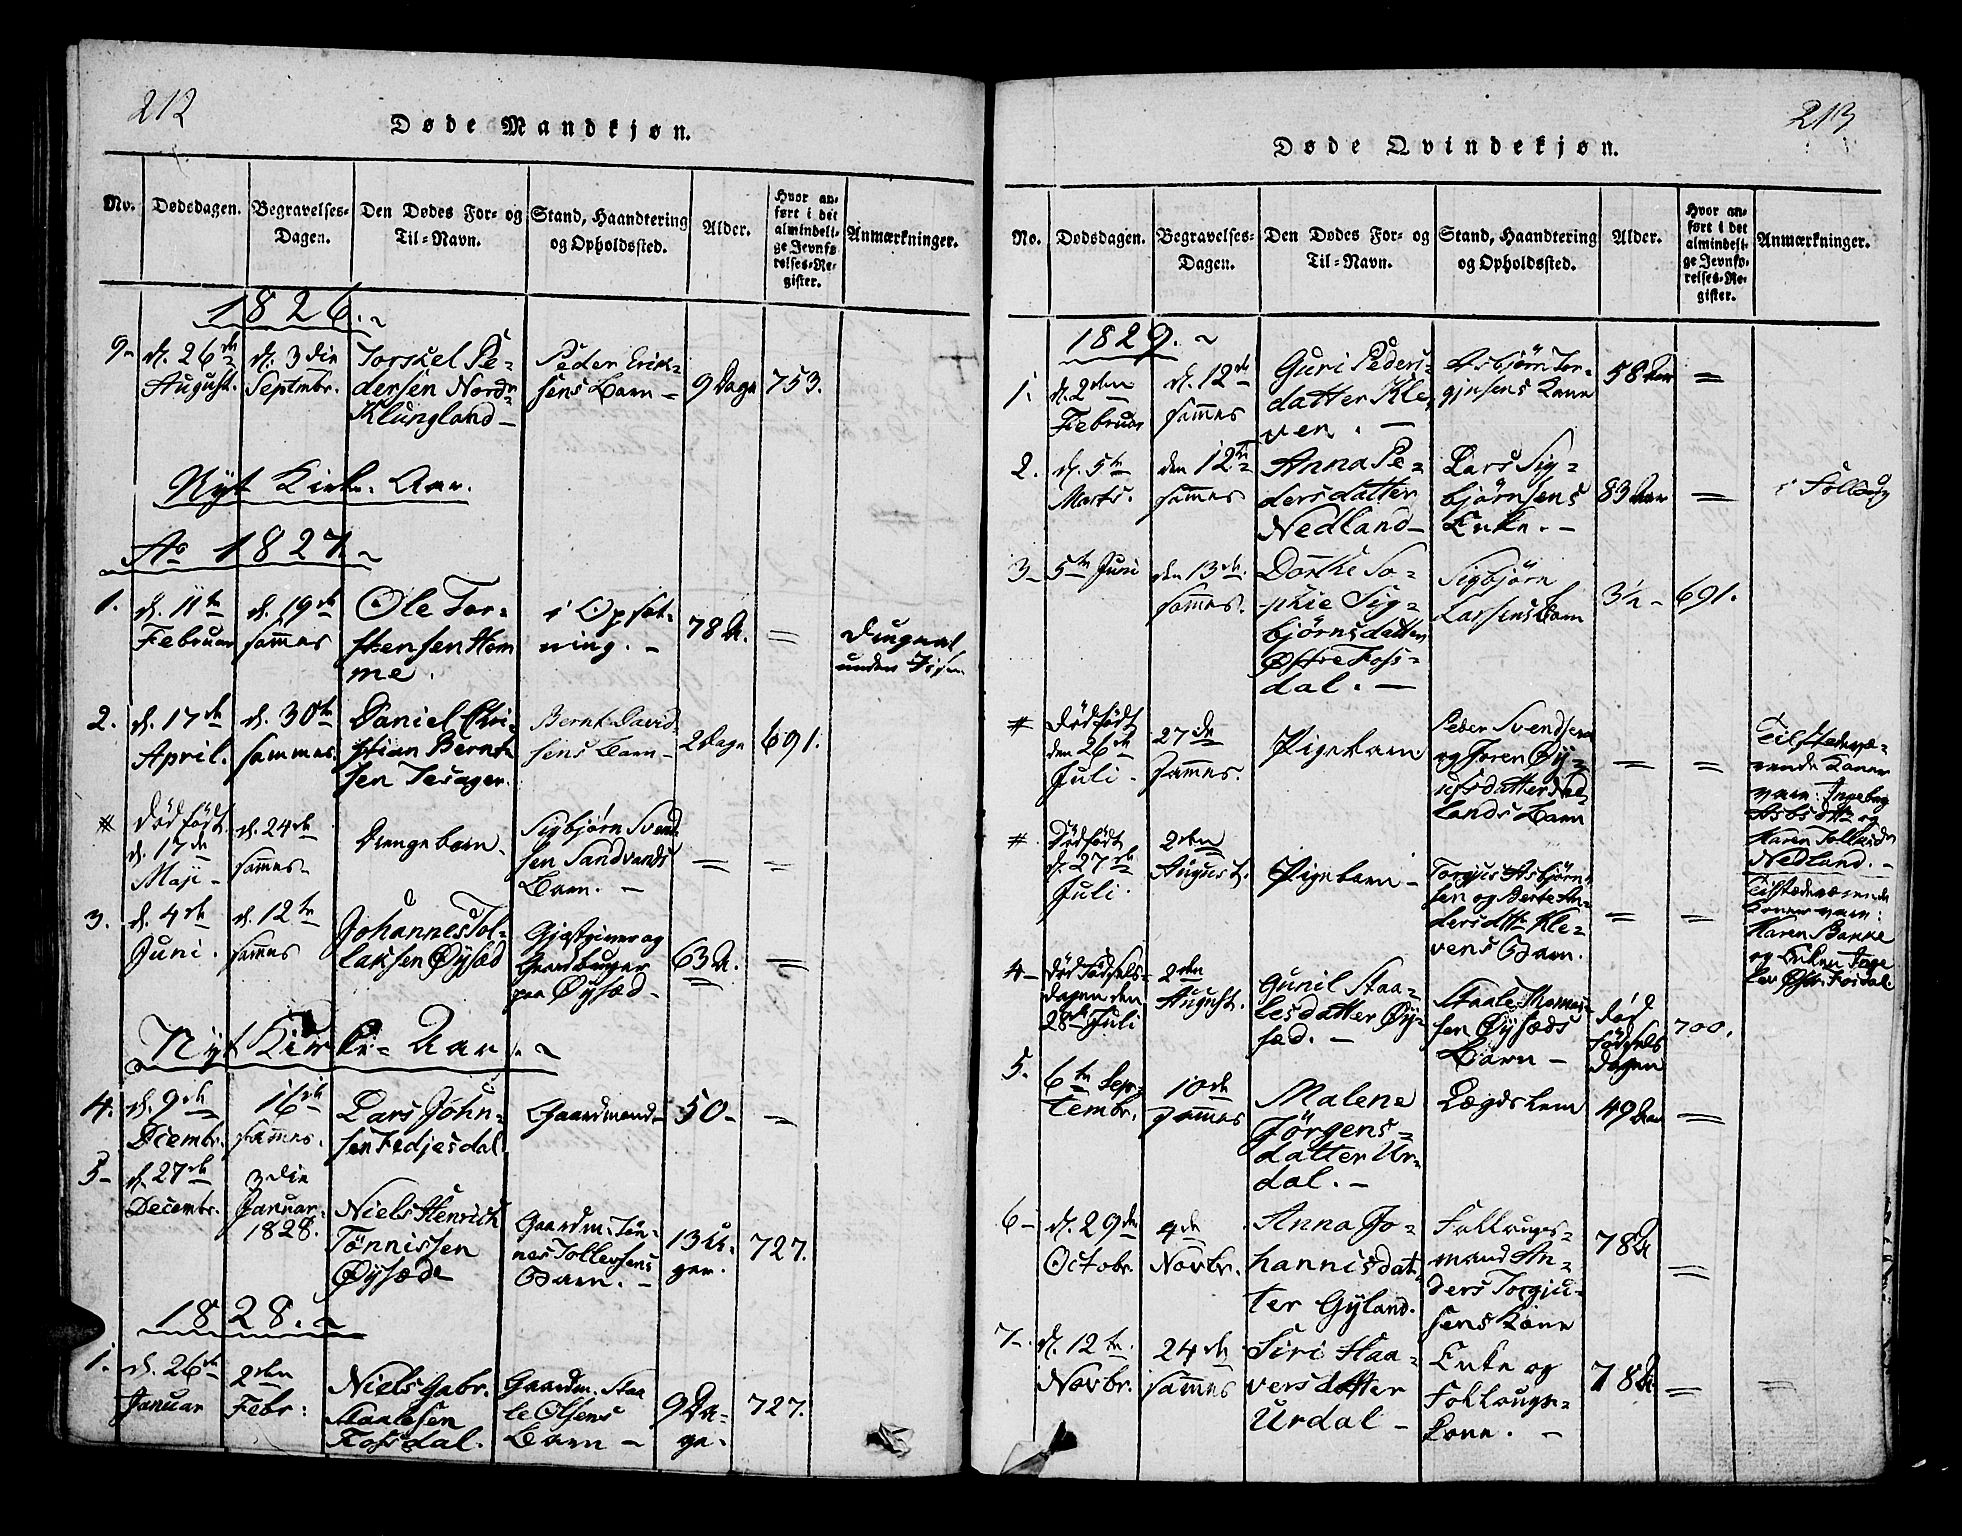 212
Døde Mandkjøn.
No. Dødsdagen. Begravelses-Dagen. Den Dødes For- og Til-Navn. Stand, Haandtering og Opholdssted. Alder. Hvor anført i det almindelige Jevnførelses-Register. Anmærkninger.
1826.
9- d. 26de August. d. 3die Septmbr. Torskel Pedersen Nordr Klungland Peder Eriksens Barn 9 Dage 753.
Nyt Kirke-Aar.
Ao 1827
1. d. 11te Februar d. 19de sammes Ole Torstensen Homme. i Opsætning. 78 A. =
2. d. 17de April. d. 30te sammes. Daniel Christian Berntsen Tesager. Bernt Davidsens Barn 2 Dage 691.
# Dødfødt d. 17de Maji d. 24de sammes Drengebarn Sigbjørn Svendsen Sandvands Barn. = =
3. d. 4de Juni. d. 12te sammes Johannes Tollaksen Øysæd Gjæstgiver og Gaardbruger paa Øysæd 63 A. =
Nyt Kirke-Aar.
4. d. 9de Decembr. 16de sammes. Lars Johnsen Fedjesdal. Gaardmand 50 =
5 d. 27de Decembr. 3die Januar 1828. Niels Henrich Tønnissen Øysæd Gaardm. Tønnes Tollevsens Barn. 13 Uger. 727.
1828.
1. d. 26de Januar 2den Febr: Niels Gabr. Staalesen Fossdal. Gaardm. Staale Olsens Barn 9 Dage. 727.
213
Døde Qvindekjøn.
No. Dødsdagen. Begravelses-Dagen. Den Dødes For- og Til-Navn. Stand, Haandtering og Opholdssted. Alder. Hvor anført i det almindelige Jevnførelses-Register. Anmærkninger.
1829.
1. d. 2den Februar d. 12te sammes Guri Pedersdatter Kleven. Asbjørn Torgjusens Kone 58 Aar =
2. d. 5te Marts. den 12te sammes Anna Pedersdatter Nedland Lars Sigbjørnsens Enke. 83 Aar =
3 5te Juni den 13de sammes. Dorthe Sophie Sigbjørnsdatter Østre Fossdal. Sigbjørn Larsens Barn 691.
# Dødfødt den 26de Juli 27de sammes. Pigebarn Peder Svendsen og Joren Øysæds Barn = = Tilstedeværende Koner vare: Ingeborg Asbsdtr og Karen Tollaksdr Nedland.
# Dødfødt d. 27de Juli. 2den August. Pigebarn Torgius Asbjørnsen og Berte Andersdtr Klevens Barn. = = Tilstedeværende Koner vare: Karen Bakke og Enken Østr. Fosdal.
4 død Fødselsdagen den 28de Juli 2den August. Gunil Staalesdatter Øysæd. Staale Thomassen Øysæds Barn død fødselsdagen 700.
5. 6te September. 10de sammes Malene Jørgensdatter Urdal. Lægdslem 49 Aar =
6 d. 29de Octobr. 4de Novbr. Anna Johannisdatter Gyland. Follougsmand Anders Torgjusens Kone 78 A =
7. d. 12te Novbr. 24de sammes Siri Haaversdatter Urdal Enke og Follougskone. 78 A =